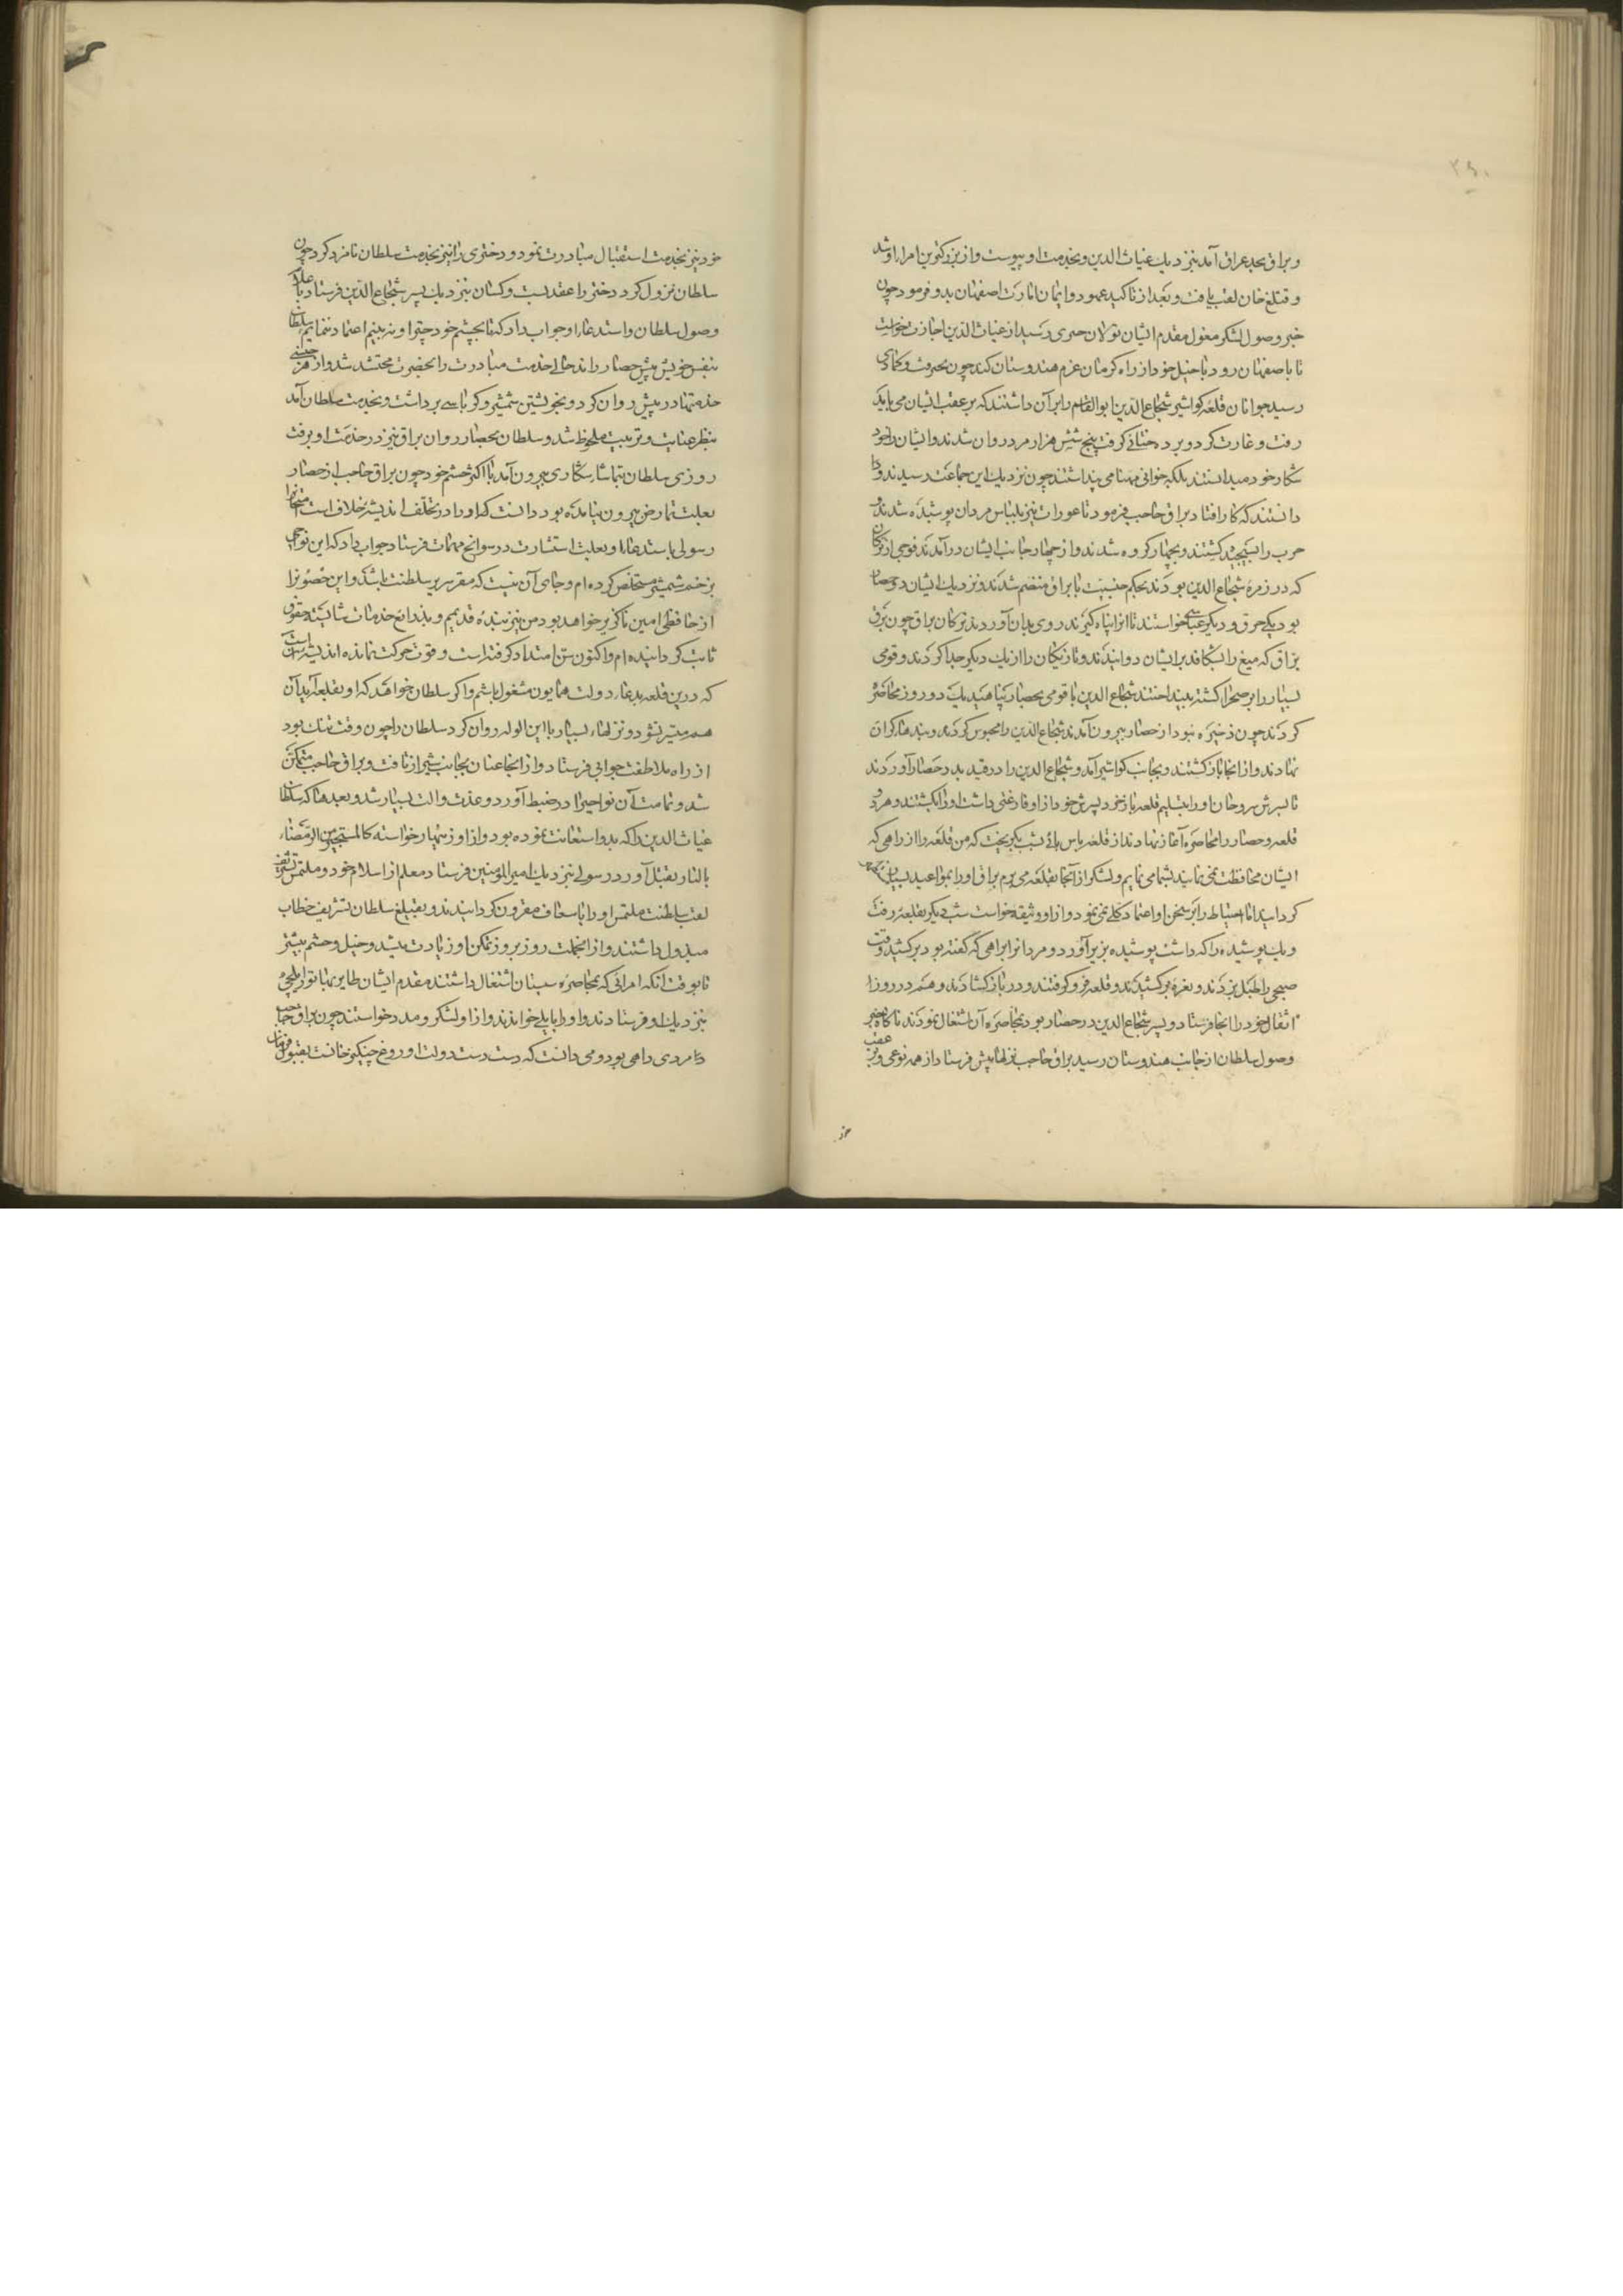 ۲۹۰
و براق بحد عراق آمد بنزدیک غیاث الدین و بخدمت او پیوست و از بزرکترین امرا او شد
و قتلغ خان لقب یافت و بعد از تاکید عهود و ایمان امارت اصفهان بدو فرمود چون
خبر وصول لشکر مغول مقدم ایشان تولان جربی رسید از غیاث الدین اجازت خواست
تا باصفهان رود با خیل خود از راه کرمان عزم هندوستان کند چون بجیرفت و کمادی
رسید جوانان قلعه کواشیر شجاع الدین ابو القاسم را بر آن داشتند که بر عقب ایشان می باید
رفت و غارت کرد و برده ختائی کرفت پنج شش هزار مرد روان شدند و ایشان را خود
شکار خود میدانستند بلکه خوانی مهنا می پنداشتند چون نزدیک این جماعت رسیدند و
دانستند که کار افتاد براق حاجب فرمود تا عورات نیز بلباس مردان پوشیده شدند و
حرب را بسیجیده کشتند و بچهار کروه شدند و از چهار جانب ایشان درآمدند فوجی از ترکان
که در زمره شجاع الدین بودند بحکم جنسیت با براق منضم شدند و نزدیک ایشان دو حصار
بود یکی حرق و دیکر عباسی خواستند تا آنرا پناه کیرند روی بدان آوردند ترکان براق چون برق
براق که میغ را بشکافد بر ایشان دوانیدند و تازیکان را از یک دیکر جدا کردند و قومی
بسیار را بر صحرا کشته بینداختند شجاع الدین با قومی بحصار پناهید یک دو روز محاصره
کردند چون ذخیره نبود از حصار بیرون آمدند شجاع الدین را محبوس کردند و بندهاء کران
نهادند و از آنجا باز کشتند و بجانب کواشیر آمد و شجاع الدین را در قید بدر حصار آوردند
تا پسرش او را بتسلیم قلعه باز خرد پسرش خود از او فارغی داشت او را بکشتند و هر دو
قلعه و حصار را محاصره آغاز نهادند از قلعه پاس بانی شب بکریخت که من قلعه را از راهی که
ایشان محافظت نمی نمایند بشما می نمایم و لشکر از آنجا بقلعه می برم براق او را بمواعید بسیار
کردانید اما احتیاط را بر سخن او اعتماد کلی نمی نمود و از او وثیقه خواست شب دیکر بقلعه رفت
و یک پوشیده را که داشت پوشیده بزیر آورد و مردانرا براهی که کفته بود برکشید وقت
صبحی را طبل بزدند و نعره برکشیدند و قلعه فرو کرفتند و در باز کشادند و هم در روز
اثقال خود را آنجا فرستاد و پسر شجاع الدین در حصار بود بمحاصره آن اشتغال نمودند ناکاه خبر
وصول سلطان از جانب هندوستان رسید براق حاجب نزلها پیش فرستاد از همه نوعی و بر عقب
خود نیز بخدمت استقبال مبادرت نمود و دختری را نیز بخدمت سلطان نامزد کرد چون
سلطان نزول کرد دختر را عقد بست و کسان بنزدیک پسر شجاع الدین فرستاد با علام
وصول سلطان و استدعاء او جواب داد که تا بچشم خود چتر او نه بینم اعتماد ننمایم سلطان
بنفس خویش پیش حصار راند حالی خدمت مبادرت را بحضرت محتشد شد و از هر جنسی
خدمتها در پیش روان کرد و بخویشتن شمشیر و کرباسی برداشت و بخدمت سلطان آمد
بنظر عنایت و تربیت ملحوظ شد و سلطان بحصار روان براق نیز در خدمت او برفت
روزی سلطان بتماشاء شکاری بیرون آمد با اکثر حشم خود چون براق حاجب از حصار
بعلت تمارض بیرون نیامده بود دانست که او را در تخلف اندیشه خلاف است امتحانرا
رسولی باستدعاء او بعلت استشارت در سوانح مهمات فرستاد جواب داد که این نواحی
بزخم شمشیر مستخلص کرده ام و جای آن نیست که مقر سریر سلطنت باشد و این حصونرا
از حافظی امین ناکزیر خواهد بود من نیز بنده قدیم و بذرائع خدمات شایسته حقوق
ثابت کردانیده ام و اکنون سن امتداد کرفته است و قوت حرکت نمانده اندیشه آن است
که درین قلعه بدعاء دولت همایون مشغول باشم و اکر سلطان خواهد که او بقلعه آید آن
هم میسر نشود و نزلهاء بسیار با این الوله روان کرد سلطان را چون وقت تنک بود
از راه ملاطفت جوابی فرستاد و از آنجا عنان بجانب شیراز تافت و براق حاجب متمکن
شد و تمامت آن نواحیرا در ضبط آورد و عدت و آلت بسیار شد و بعد ما که سلطان
غیاث الدین را که بدو استعانت نموده بود و از او زینهار خواسته کالمستجیر من الرمضاء
بالنار بقتل آورد رسولی بنزدیک امیر المؤمنین فرستاد معلم از اسلام خود و ملتمس تشریف
لقب سلطنت ملتمس او را باسعاف مقرون کردانیدند و بقتلغ سلطان تشریف خطاب
مبذول داشتند و از آنجهت روز بروز تمکن او زیادت میشد و خیل و حشم بیشتر
تا بوقت آنکه امرائی که بمحاصره سیستان اشتغال داشتند مقدم ایشان طایر بهادر ایلچی
بنزدیک او فرستادند و او را بایلی خواندند و از او لشکر و مدد خواستند چون براق حاجب
مردی داهی بود و می دانست که دست دست دولت اوروغ چنکیز خانست بقبول فرمان